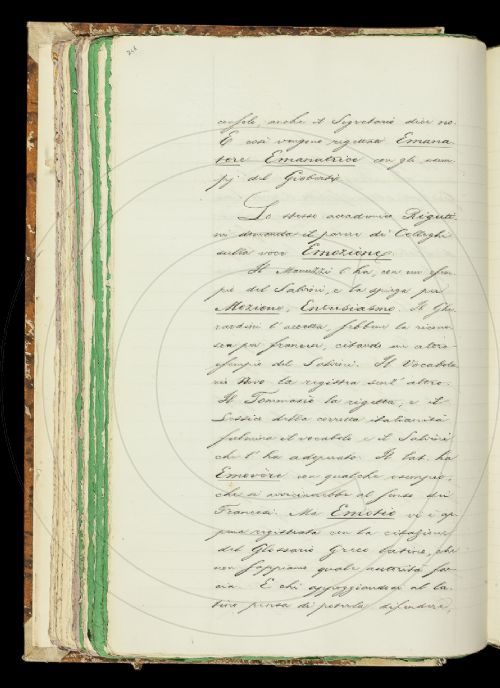 console, anche il Segretario dice no.
E così vengono rigettati Emana-
tore Emanatrice con gli esem-
pj del Gioberti.
Lo stesso accademico Riguti-
ni domanda il parere de' Colleghi
sulla voce Emozione.
Il Manuzzi l'ha, con un esem-
pio del Salvini, e la spiega per
Mozione, Entusiasmo. Il Ghe-
rardini l'accetta, sebbene la ricono-
sca per francese, citando un altro
esempio del Salvini. Il Vocabola-
rio Novo la registra senz'altro.
Il Tommaseo la rigetta; e il
Lessico della corrotta italianità
fulmina il vocabolo e il Salvini
che l'ha adoperato. Il lat. ha
Emovère con qualche esempio,
che si avvicinerebbe al senso dei
Francesi. Ma Emotio vi è ap-
pena registrata con la citazione
del Glossario Greco latino, che
non sappiamo quale autorità fac-
cia. E chi appoggiandosi al la-
tino pensa di poterla difendere,